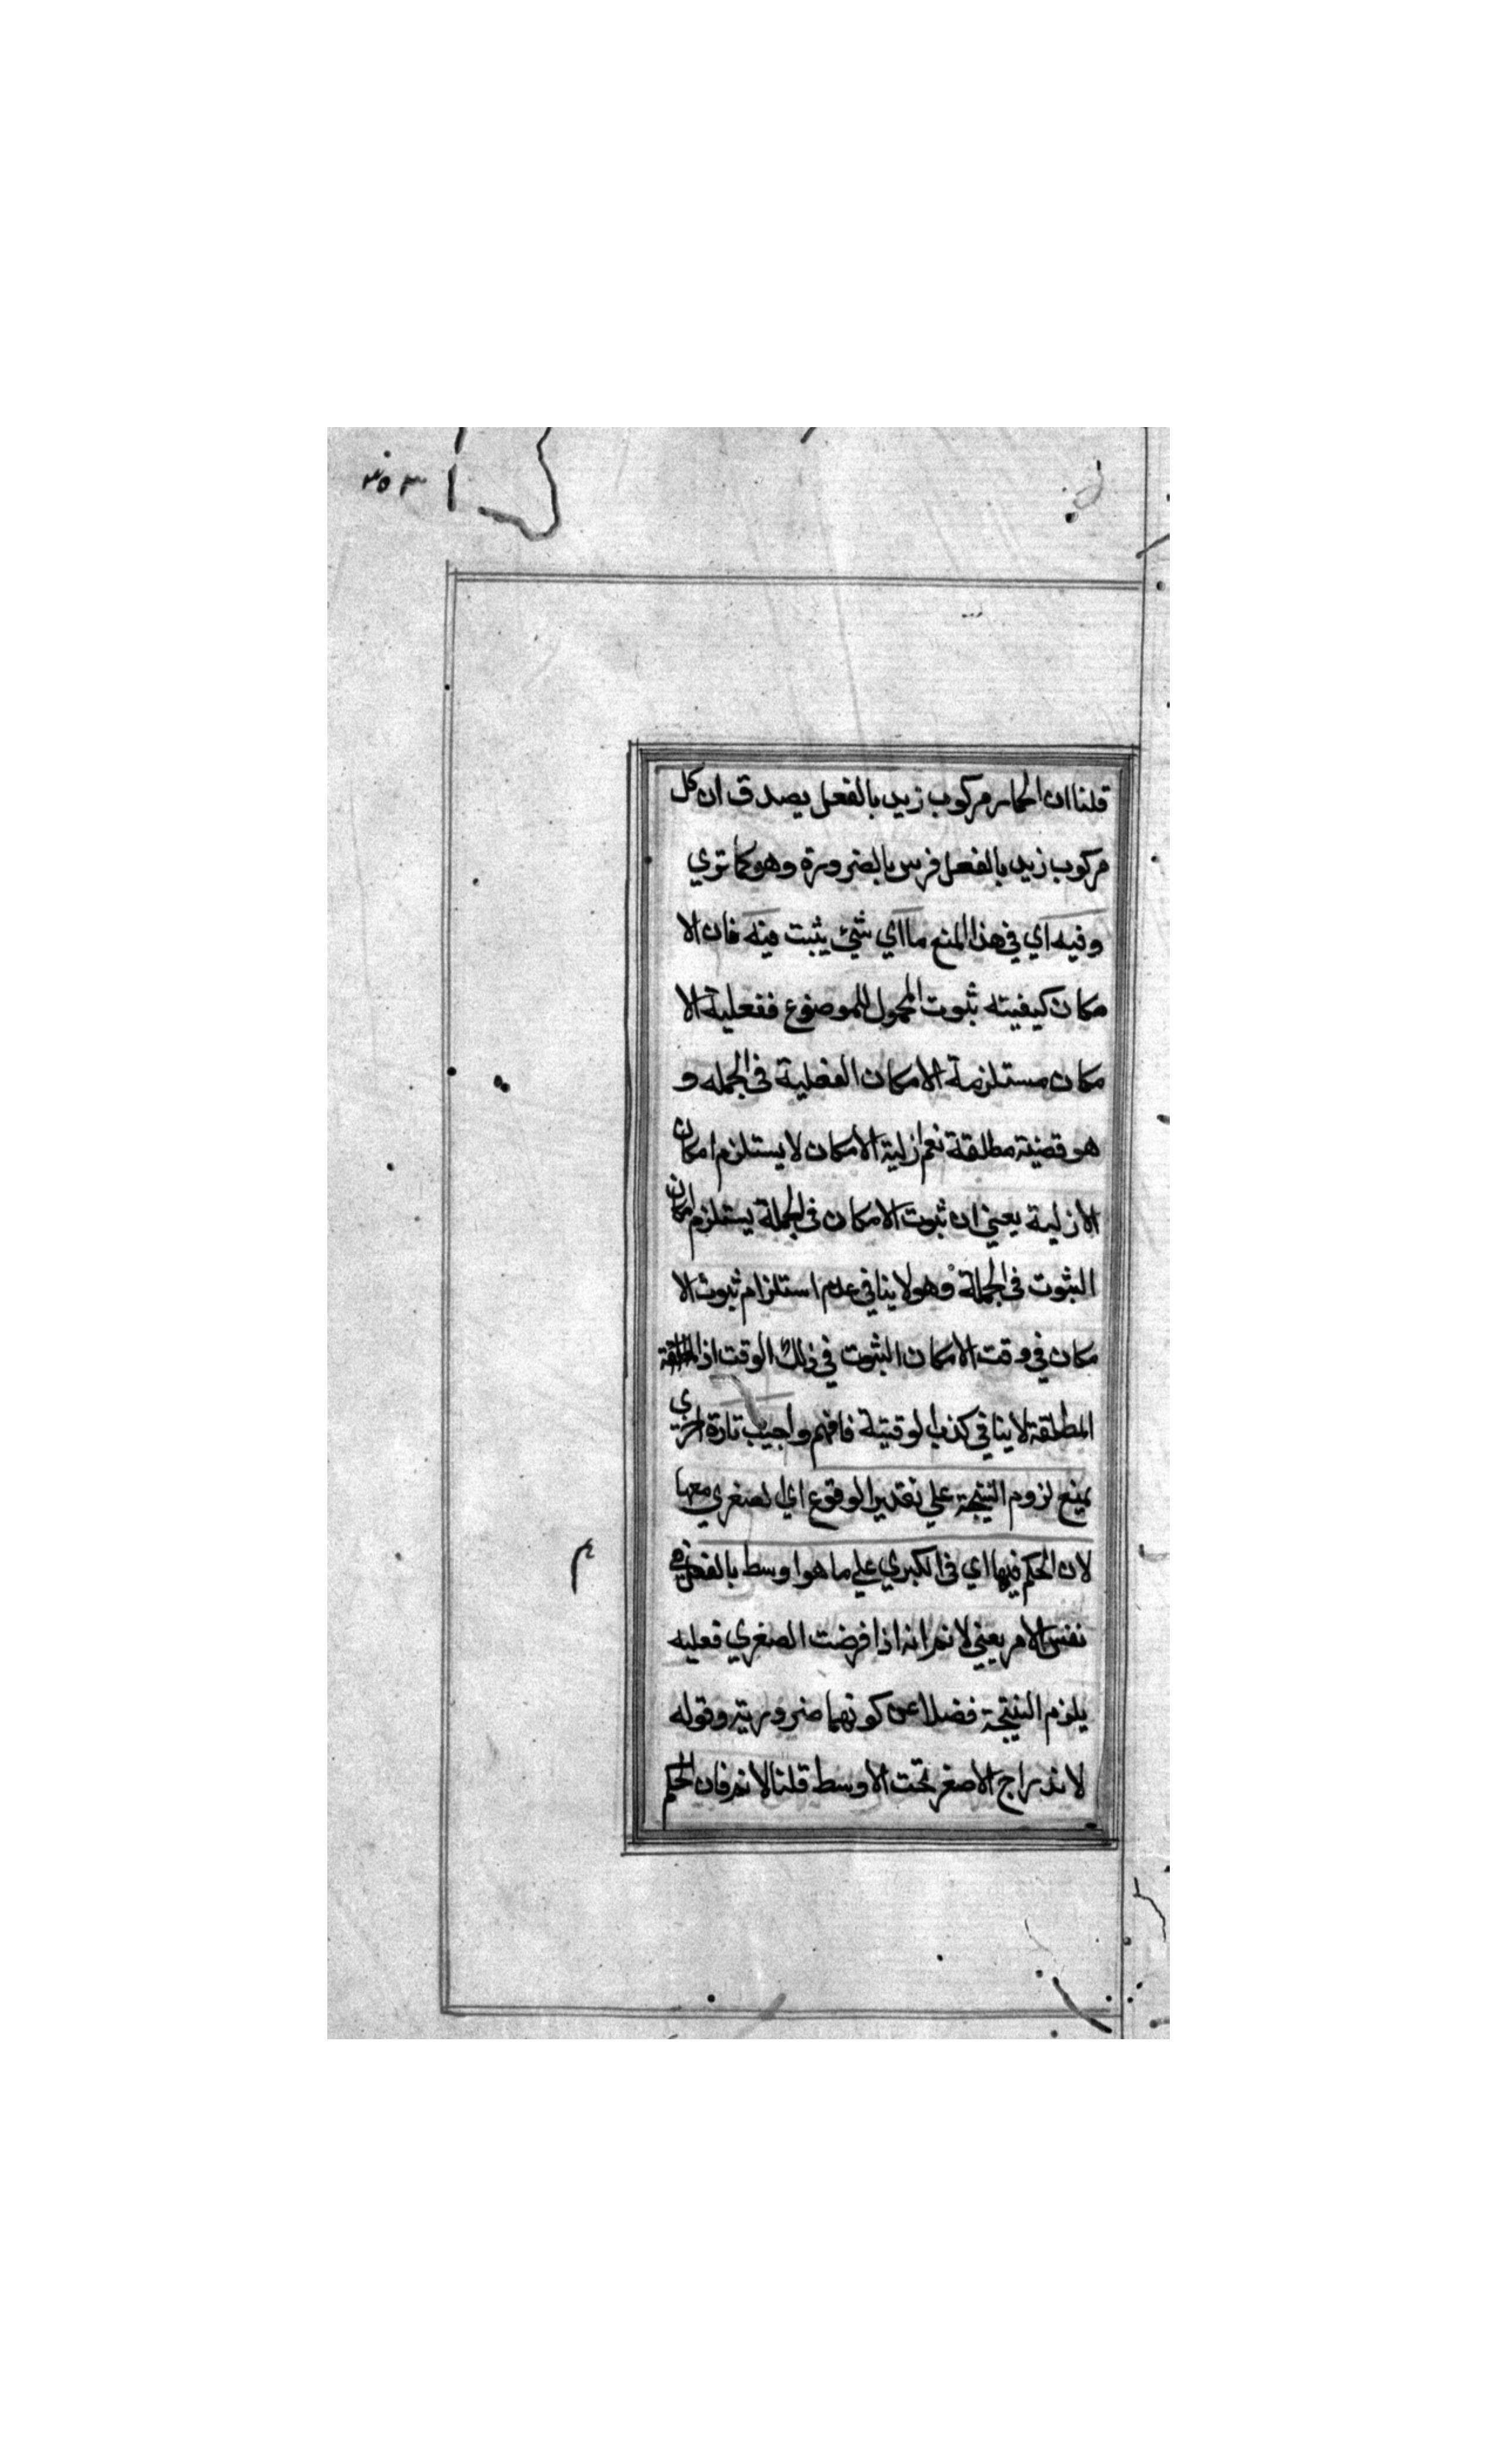 ٣٥٣
قلنا ان الحمار مركوب زيد بالفعل يصدق ان كل
مركوب زيد بالفعل فرس بالضرورة وهو كما تري
وفيه اي في هذا المنع ما اي شئ يثبت فيه فان الا
مكان كيفيته ثبوت المحمول للموضوع ففعلية الا
مكان مستلزمة لامكان الفعلية في الجمله و
هو قضية مطلقة نعم ازلية الامكان لا يستلزم امكان
الازلية يعني ان ثبوت الامكان في الجملة يستلزم امكان
الثبوت في الجملة وهو لا ينافي عدم استلزام ثبوت الا
مكان في وقت الامكان الثبوت في ذلك الوقت اذ
المطلقة لا ينافي كذب الوقتية فافهم واجيب تارة اخري
بمنع لزوم النتيجة علي تقدير الوقوع اي الصغري معها
لان الحكم فيها اي في الكبري علي ما هو اوسط بالفعل في
نفس الامر يعني لا نم انه اذا فرضت الصغري فعليه
يلزم النتيجة فضلا عن كونهما ضرورية وقوله
لاندراج الاصغر تحت الاوسط قلنا لا نم فان الحكم